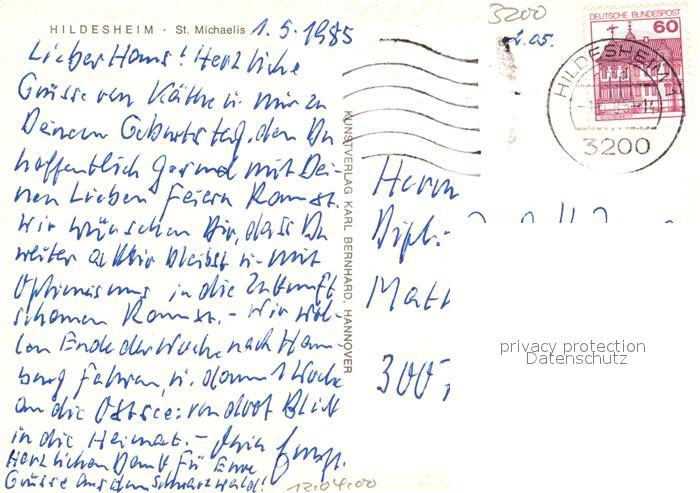 HILDESHEIM · St. Michaelis 1.5.1985
Lieber Hans! Herzliche
Grüsse von Käthe u. mir zu
Deinem Geburtstag, den Du
hoffentlich gesund mit Dei-
nen Lieben feiern kannst.
Wir wünschen Dir, dass Du
weiter aktiv bleibst u. mit
Optimismus in die Zukunft
schauen kannst. – Wir wol-
len Ende der Woche nach Ham-
burg fahren, u. dann 1 Woche
an die Ostsee: von dort Blick
in die Heimat. – Dein
Herzlichen Dank für Eure
Grüsse aus dem Schwarzwald!
12.04.00
KUNSTVERLAG KARL BERNHARD, HANNOVER
3200
2.05.
DEUTSCHE BUNDESPOST
60
HILDESHEIM 1
3200
Herrn
Dipl.-
privacy protection
Datenschutz